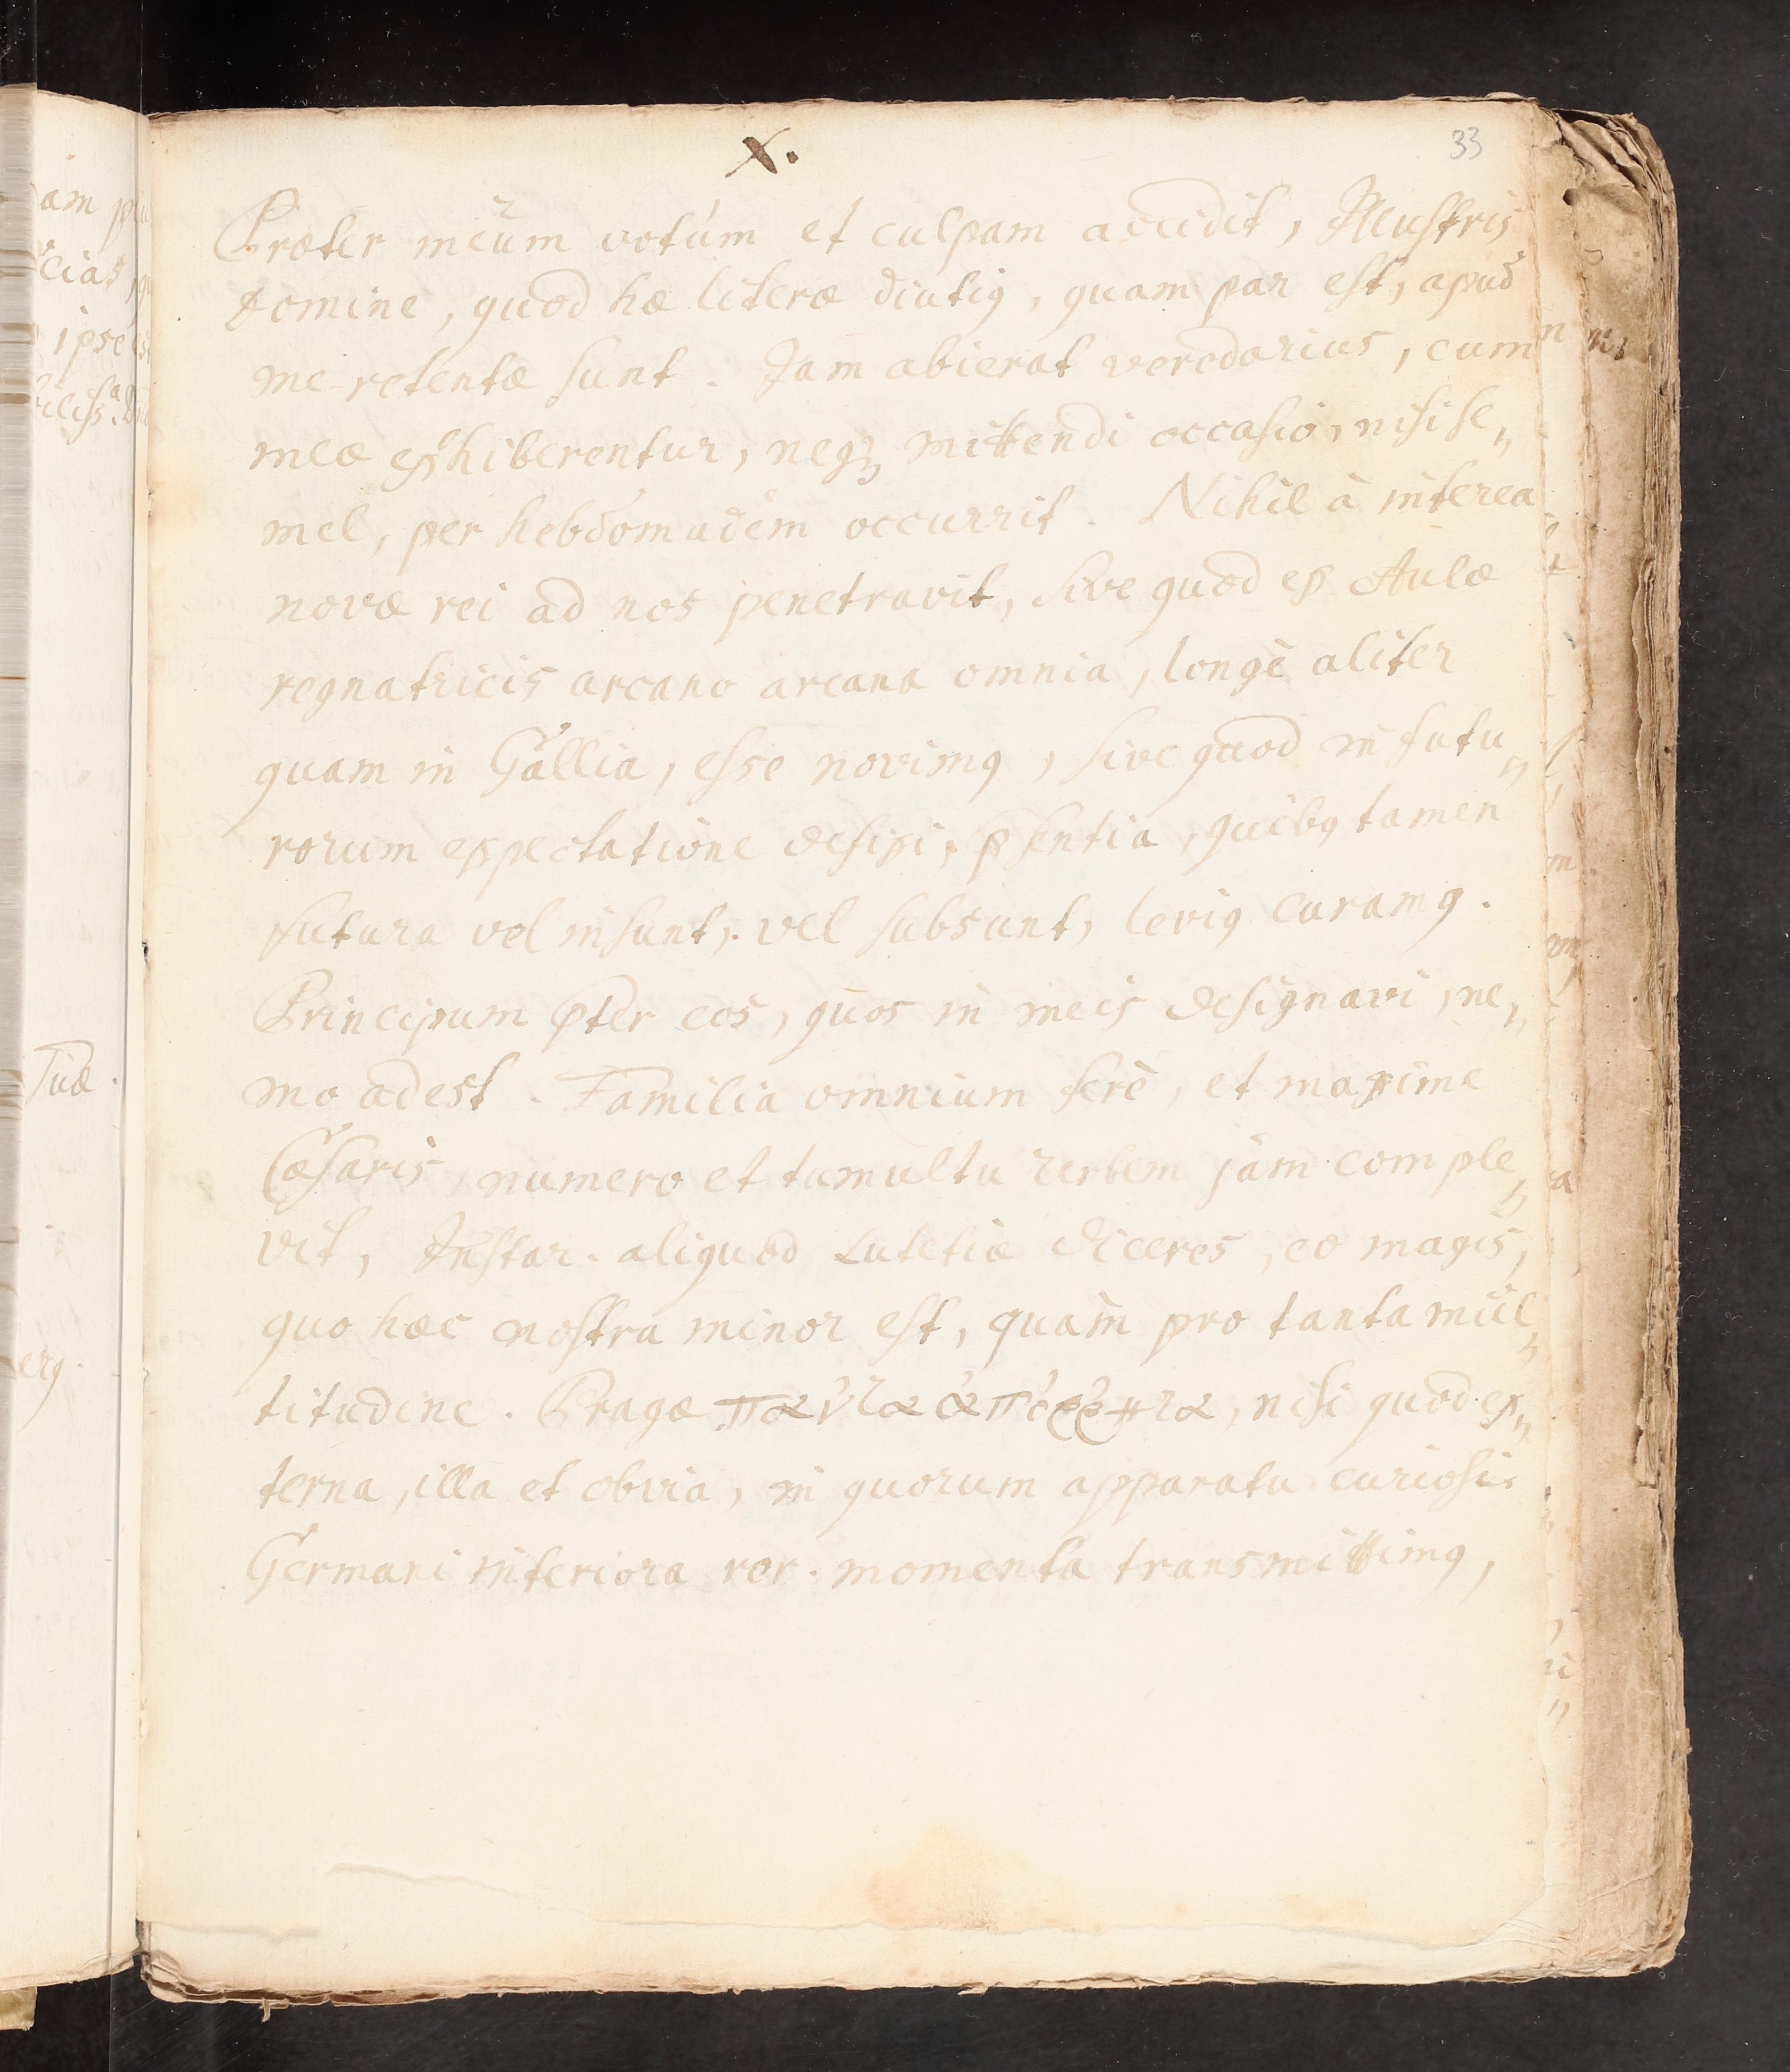 X.
33
Præter meūm votúm et culpam accidit, Illustris
Domine, quod hæ literæ diutiꝰ, quam par est, apud
me retentæ sunt. Jam abierat veredarius, cum
meæ exhiberentur, neqꝫ mittendi occasio, nisi se„
mel, per hebdomadem occurrit. Nihil à interea
novæ rei ad nos penetravit, sive quod ex Aulæ
regnatricis arcano arcana omnia, longè aliter
quam in Gallia, esse novimꝰ, sive quod in futu„
rorum expectatione defixi, p̄sentia, quibꝰ tamen
futura vel insunt, vel subsunt, leviꝰ curamꝰ.
Principum p̄ter eos, quos in meis designavi, ne„
mo adest. Familia omnium ferè, et maxime
Cæsaris, numero et tumultu urbem jam comple„
vit, Instar aliquod Lutetiæ diceres, eo magis,
quo hæc nostra minor est, quam pro tanta mul„
titudine. Pragæ πάντα ἀπόῤῥητα, nisi quod ex„
terna, illa et obvia, in quorum apparatu curiosi
Germani interiora rer. momenta transmittimꝰ,